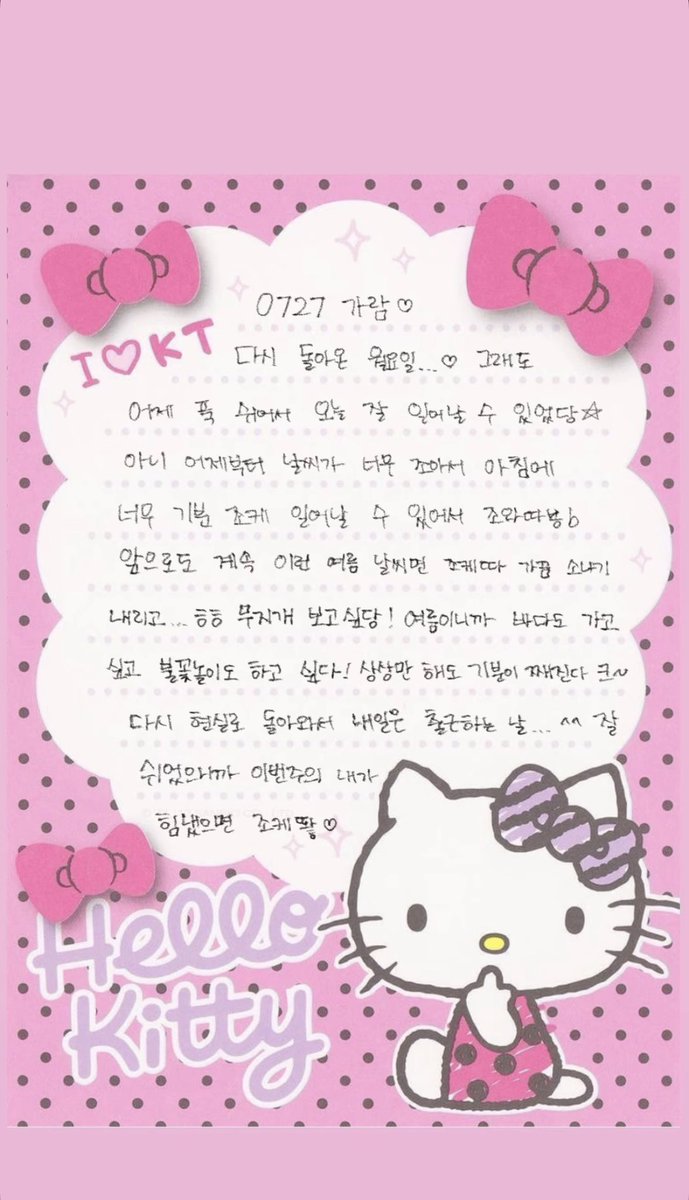 0727 가람♡
I♡KT
다시 돌아온 월요일...♡ 그래도
어제 푹 쉬어서 오늘 잘 일어날 수 있었당☆
아니 어제부터 날씨가 너무 조아서 아침에
너무 기분 조케 일어날 수 있어서 조와따봉b
앞으로도 계속 이런 여름 날씨면 조케따 가끔 소나기
내리고... ㅎㅎ 무지개 보고싶당! 여름이니까 바다도 가고
싶고 불꽃놀이도 하고 싶다! 상상만 해도 기분이 째진다 크~
다시 현실로 돌아와서 내일은 출근하는 날... ^^ 잘
쉬었으니까 이번주의 내가
힘냈으면 조케땋♡
Hello
Kitty